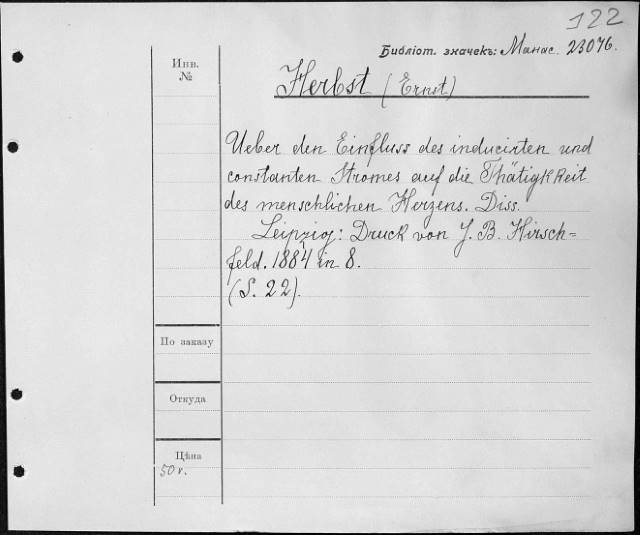 122
Библіот. значекъ: Манас. 23076.
Инв.
№
Herbst (Ernst)
Ueber den Einfluss des inducirten und
constanten Stromes auf die Thätigkeit
des menschlichen Herzens. Diss.
Leipzig: Druck von J. B. Hirsch=
feld. 1884 in 8.
(S. 22).
По заказу
Откуда
Цѣна
50 г.